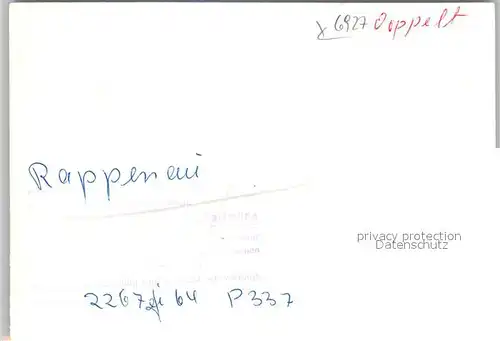 x 6927 Doppelt
Rappenau
privacy protection
Datenschutz
P 337